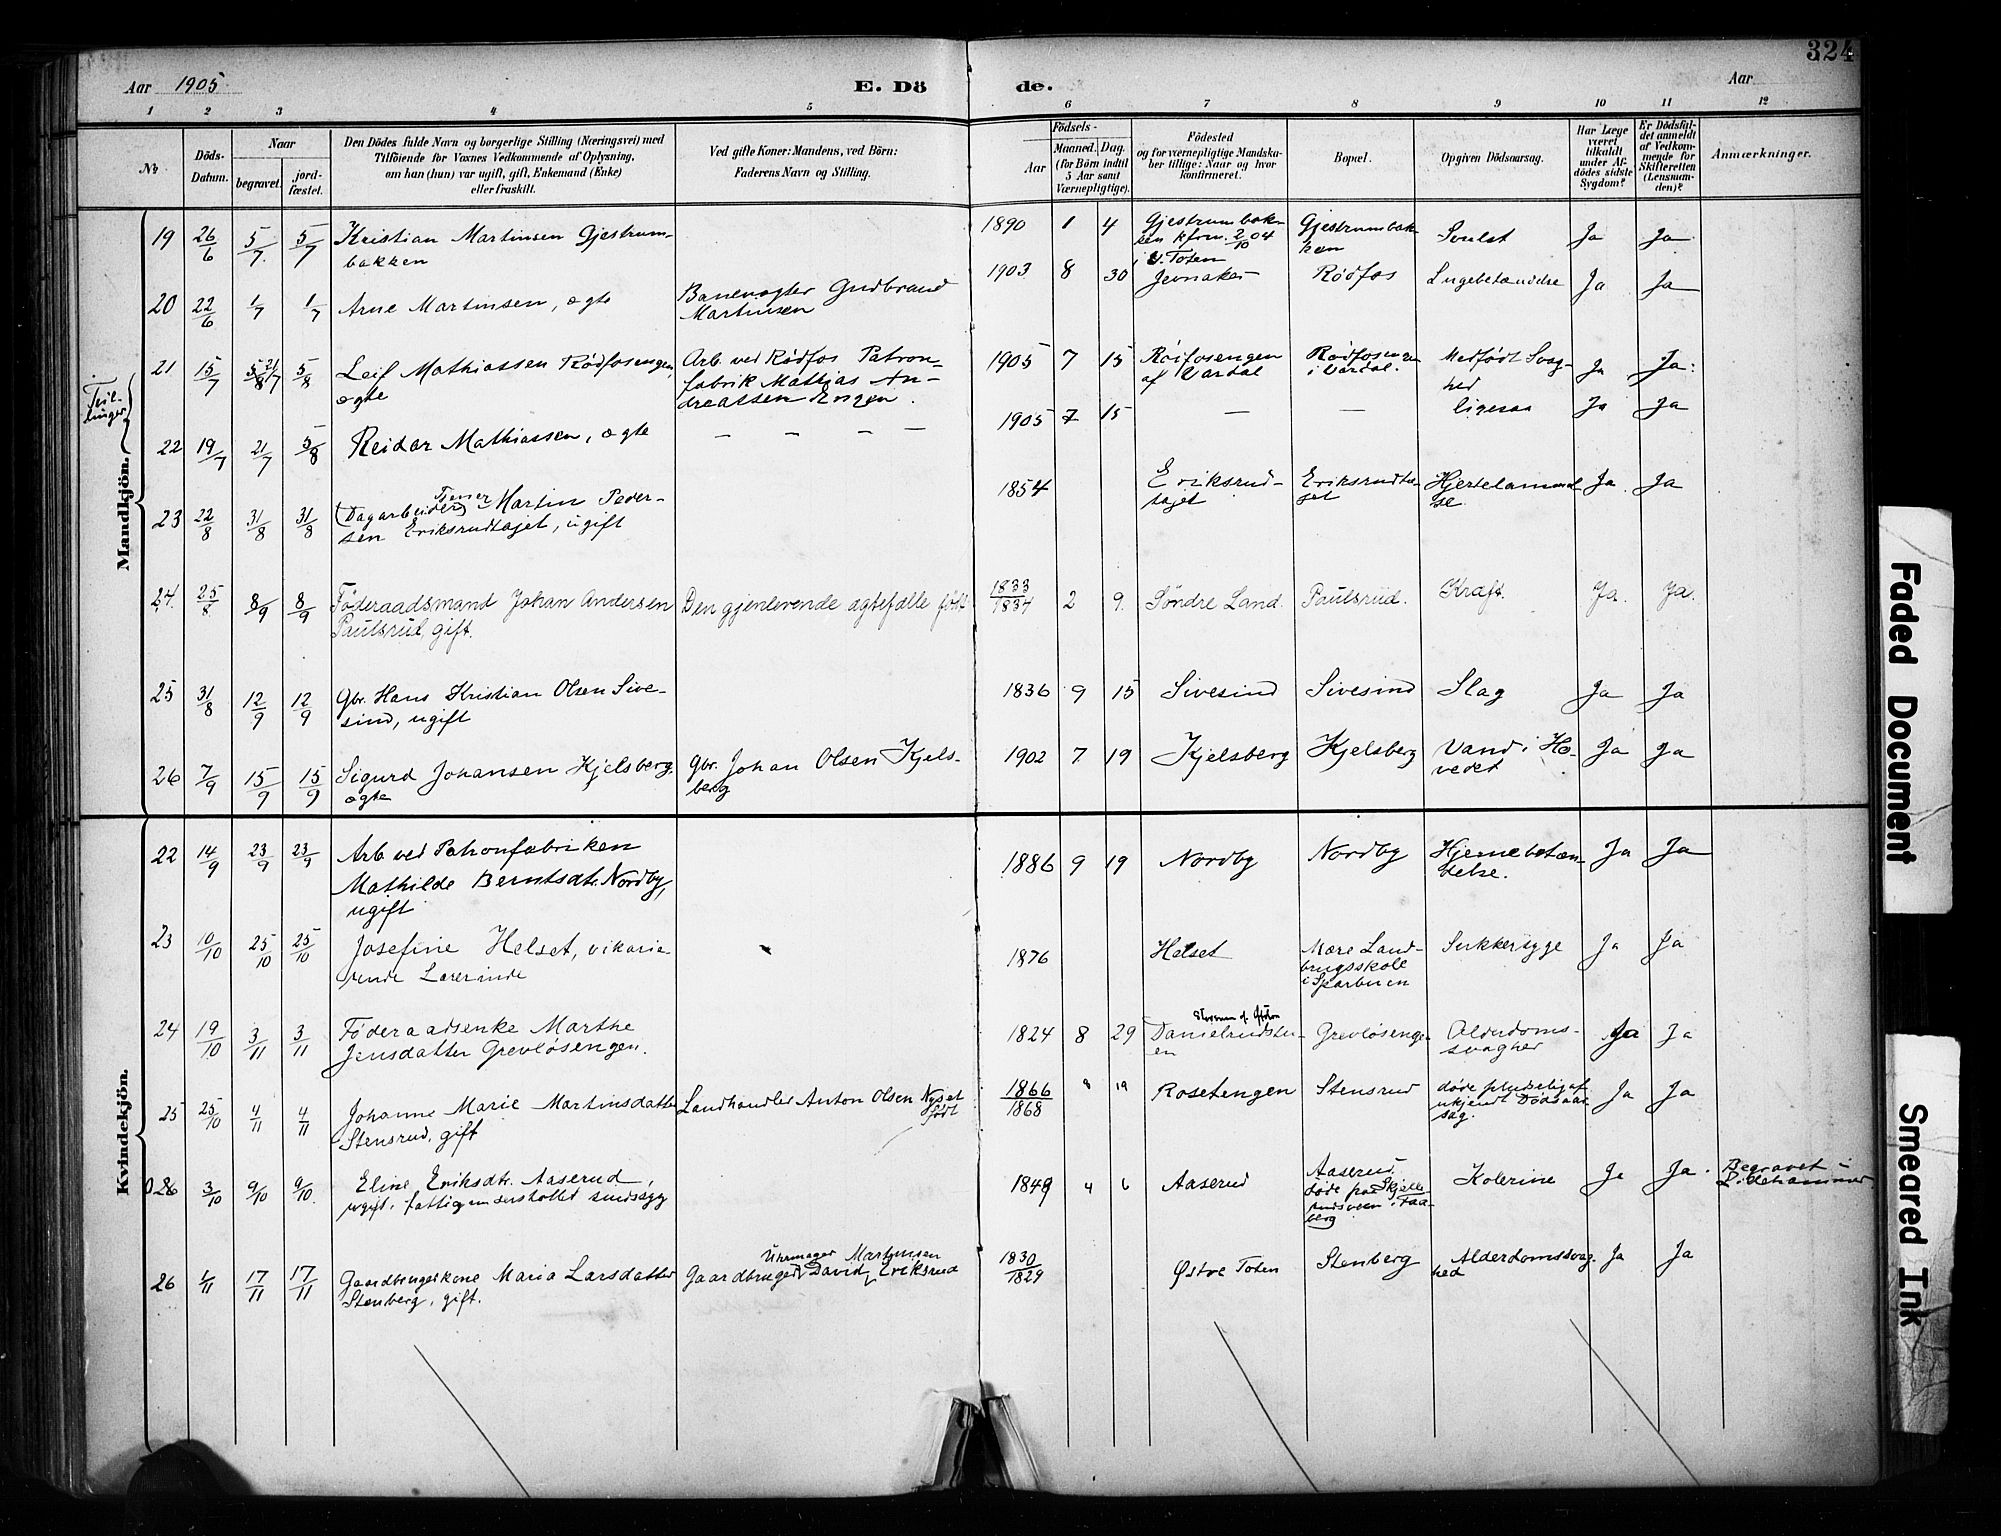 324
Aar 1905.
E. Dö
de.
Aar
1 2 3 4 5 6 7 8 9 10 11 12
No.
Döds-
Datum.
Naar
begravet.
jord-
fæstet.
Den Dödes fulde Navn og borgerlige Stilling (Næringsvei) med
Tilföiende for Voxnes Vedkommende af Oplysning,
om han (hun) var ugift, gift, Enkemand (Enke)
eller fraskilt.
Ved gifte Koner: Mandens, ved Börn:
Faderens Navn og Stilling.
Födsels-
Aar
Maaned. Dag.
(for Börn indtil
5 Aar samt
Værnepligtige).
Födested
og for værnepligtige Mandska-
ber tillige: Naar og hvor
konfirmeret.
Bopæl.
Opgiven Dödsaarsag.
Har Læge
været
tilkaldt
under Af-
dödes sidste
Sygdom?
Er Dödsfal-
det anmeldt
af Vedkom-
mende for
Skifteretten
(Lensman-
den)?
Anmærkninger.
Mandkjön.
19 26/6 5/7 5/7 Kristian Martinsen Gjestrum-
bakken
1890 1 4 Gjestrumbak-
ken kfrm. 2/10 04
i V. Toten
Gjestrumbak-
ken
Ja Ja
20 22/6 1/7 1/7 Arne Martinsen, ægte
Banevogter Gudbrand
Martinsen
1903 8 30 Jevnaker Rødfos Lugebetændelse Ja Ja
Tvil-
linger
21 15/7 5/8 21/7 5/8 Leif Mathiassen Rødfosengen,
ægte
Arb. ved Rødfos Patron-
fabrik Mathias An-
dreassen Engen.
1905 7 15 Røifosengen
af Vardal
Rødfosengen
i Vardal.
Medfødt Svag-
hed
Ja Ja.
22 19/7 21/7 5/8 Reidar Mathiassen, ægte
— — — —
1905 7 15 — — ligesaa Ja Ja
23 22/8 31/8 31/8 (Dagarbeider) Tjener Martin Peder-
sen Eriksrudtajet, ugift
1854 Eriksrud-
tajet
Eriksrudta-
jet
Hjertelammel-
se.
Ja. Ja
24. 25/8 8/9 8/9 Føderaadsmand Johan Andersen
Paulsrud, gift.
Den gjenlevende ægtefælle født
1833/1834 2 9. Søndre Land. Paulsrud. Kræft. Ja. Ja.
25 31/8 12/9 12/9 Gbr. Hans Kristian Olsen Sive-
sind, ugift
1836 9 15 Sivesind Sivesind Slag Ja Ja
26 7/9 15/9 15/9 Sigurd Johansen Kjelsberg,
ægte
Gbr. Johan Olsen Kjels-
berg
1902 7 19 Kjelsberg Kjelsberg Vand i Ho-
vedet
Ja Ja
Kvindekjön.
22 14/9 23/9 23/9 Arb. ved Patronfabriken
Mathilde Berntsdtr. Nordby,
ugift
1886 9 19 Nordby Nordby Hjernebetæn-
delse.
Ja Ja
23 10/10 25/10 25/10 Josefine Helset, vikarie-
rende Lærerinde
1876 Helset Mære Land-
brugsskole
i Sparbuen
Sukkersyge Ja Ja
24 19/10 3/11 3/11 Føderaadsenke Marthe
Jensdatter Grevløsengen.
1824 8 29
Danielrudstu-
en
Grevløsengen Alderdoms-
svaghed
Ja Ja
25 25/10 4/11 4/11 Johanne Marie Martinsdatter
Stensrud, gift
Landhandler Anton Olsen Nyset
født
1866/1868 9 19 Rosetengen Stensrud døde pludselig af
ukjendt Dødsaar-
sag.
Ja Ja
26 3/10 9/10 9/10. Eline Eriksdtr. Aaserud,
ugift, fattigunderstøttet sindssyg
1849 4 6 Aaserud Aaserud
døde paa Skjelle-
rudsveen i Faa-
berg.
Kolerine Ja Ja. Begravet i
Lillehammer
26 1/11 17/11 17/11 Gaardbrugerkone Maria Larsdatter
Stenberg, gift.
Uhrmager Martinsen
Gaardbruger David Eriksrud
1830/1829 Østre Toten Stenberg Alderdomssvag-
hed
Ja Ja
Faded Document
Smeared Ink